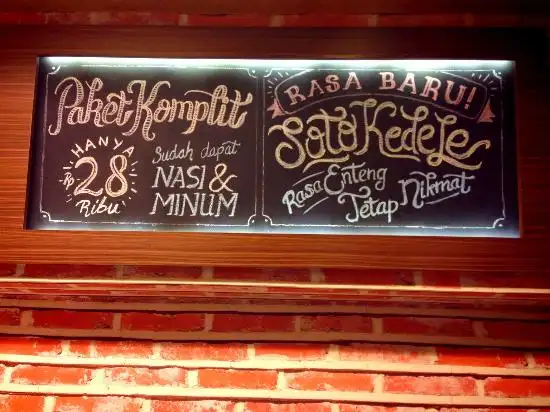 Paket Komplit
HANYA
Rp 28
Ribu
Sudah dapat
NASI &
MINUM
RASA BARU!
Soto Kedele
Rasa Enteng
Tetap Nikmat